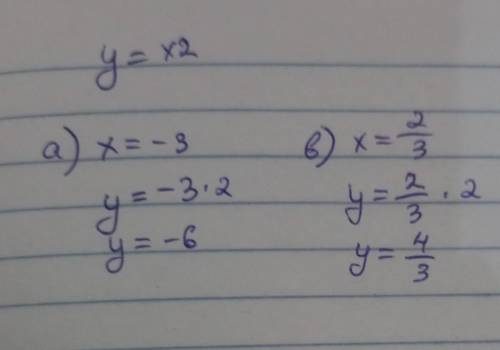 y = x2
а) x = -3
y = -3 · 2
y = -6
в) x = 2/3
y = 2/3 · 2
y = 4/3